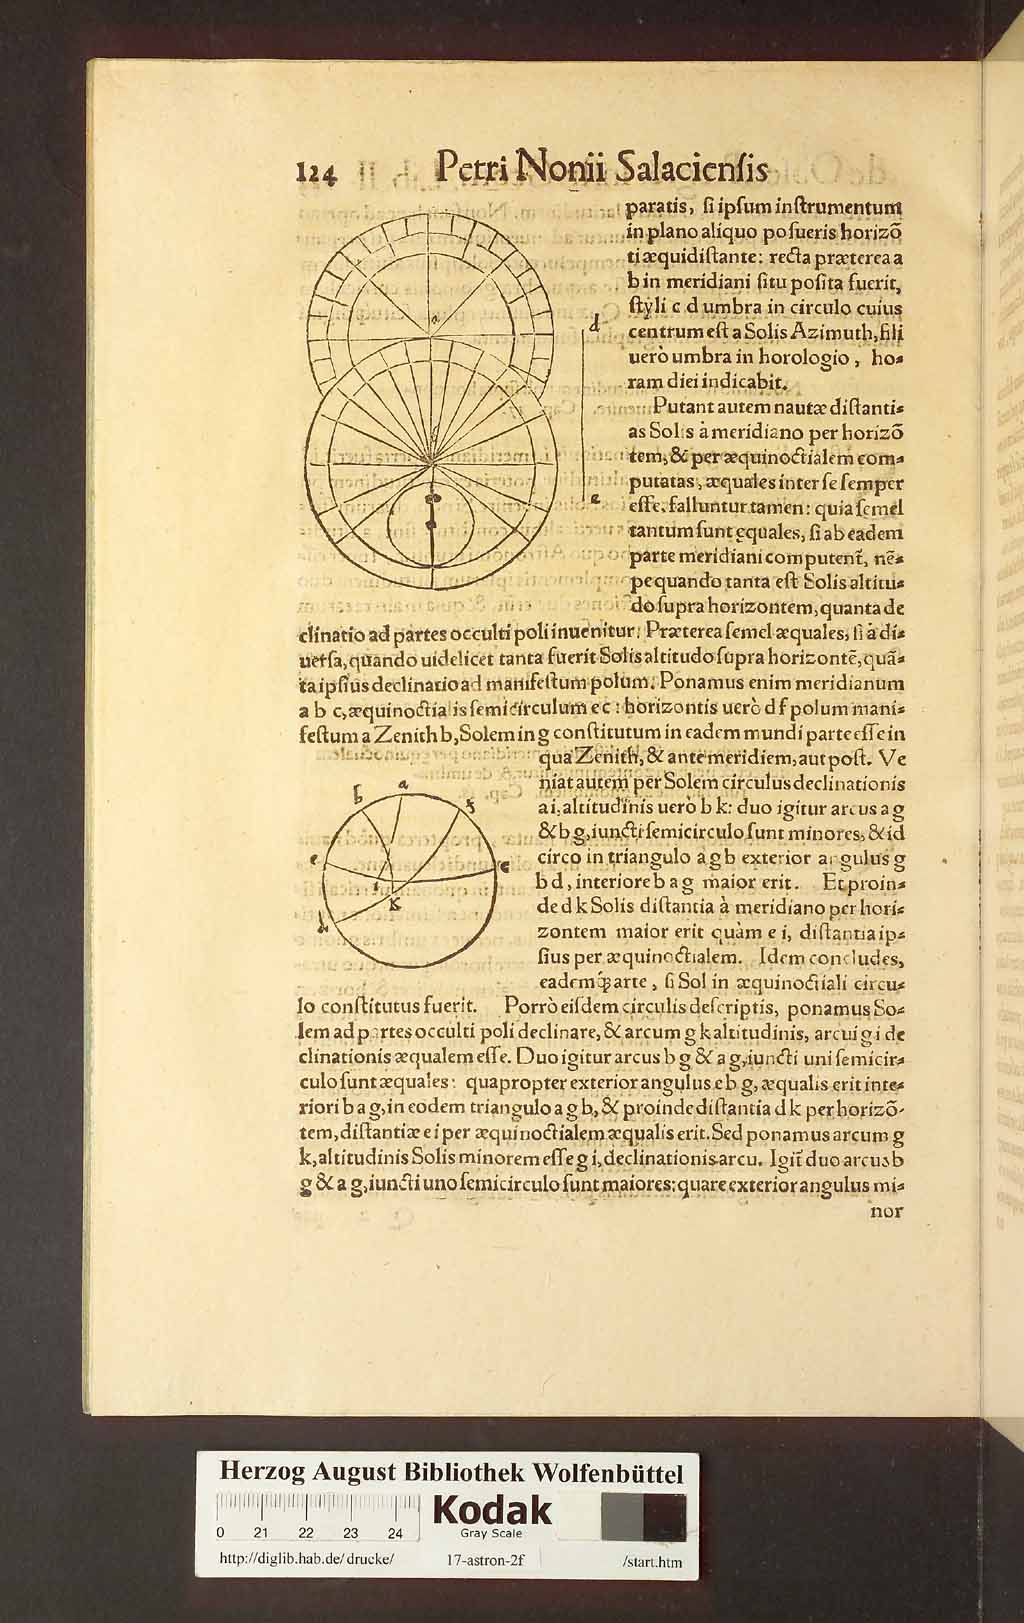 124 Petri Nonii Salacienſis
paratis, ſi ipſum inſtrumentum
in plano aliquo poſueris horizõ
ti æquidiſtante: recta præterea a
b in meridiani ſitu poſita fuerit,
ſtyli c d umbra in circulo cuius
centrum eſt a Solis Azimuth, fili
uerò umbra in horologio, ho⸗
ram diei indicabit.
Putant autem nautæ diſtanti⸗
as Solis à meridiano per horizõ
tem, & per æquinoctialem com⸗
putatas, æquales inter ſe ſemper
eſſe. falluntur tamen: quia ſemel
tantum ſunt ęquales, ſi ab eadem
parte meridiani computent᷑, nẽ⸗
pe quando tanta eſt Solis altitu⸗
do ſupra horizontem, quanta de
clinatio ad partes occulti poli inuenitur. Præterea ſemel æquales, ſi à di⸗
uerſa, quando uidelicet tanta fuerit Solis altitudo ſupra horizontẽ, quã⸗
ta ipſius declinatio ad manifeſtum polum. Ponamus enim meridianum
a b c, æquinoctialis ſemicirculum e c: horizontis uerò d f polum mani⸗
feſtum a Zenith b, Solem in g conſtitutum in eadem mundi parte eſſe in
qua Zenith, & ante meridiem, aut poſt. Ve
niat autem per Solem circulus declinationis
a i, altitudinis uerò b k: duo igitur arcus a g
& b g, iuncti ſemicirculo ſunt minores, & id
circo in triangulo a g b exterior angulus g
b d, interiore b a g maior erit. Et proin⸗
de d k Solis diſtantia à meridiano per hori⸗
zontem maior erit quàm e i, diſtantia ip⸗
ſius per æquinoctialem. Idem concludes,
eademq́ꝫ arte, ſi Sol in æquinoctiali circu⸗
lo conſtitutus fuerit. Porrò eiſdem circulis deſcriptis, ponamus So⸗
lem ad partes occulti poli declinare, & arcum g k altitudinis, arcui g i de
clinationis æqualem eſſe. Duo igitur arcus b g & a g, iuncti uni ſemicir⸗
culo ſunt æquales: quapropter exterior angulus e b g, æqualis erit inte⸗
riori b a g, in eodem triangulo a g b, & proinde diſtantia d k per horizõ⸗
tem, diſtantiæ e i per æquinoctialem æqualis erit. Sed ponamus arcum g
k, altitudinis Solis minorem eſſe g i, declinationis arcu. Igit᷑ duo arcus b
g & a g, iuncti uno ſemicirculo ſunt maiores: quare exterior angulus mi⸗
nor
a
d
e
b
a
f
e
c
i
k
d
Herzog August Bibliothek Wolfenbüttel
Kodak
Gray Scale
0 21 22 23 24
http://diglib.hab.de/drucke/ 17-astron-2f /start.htm